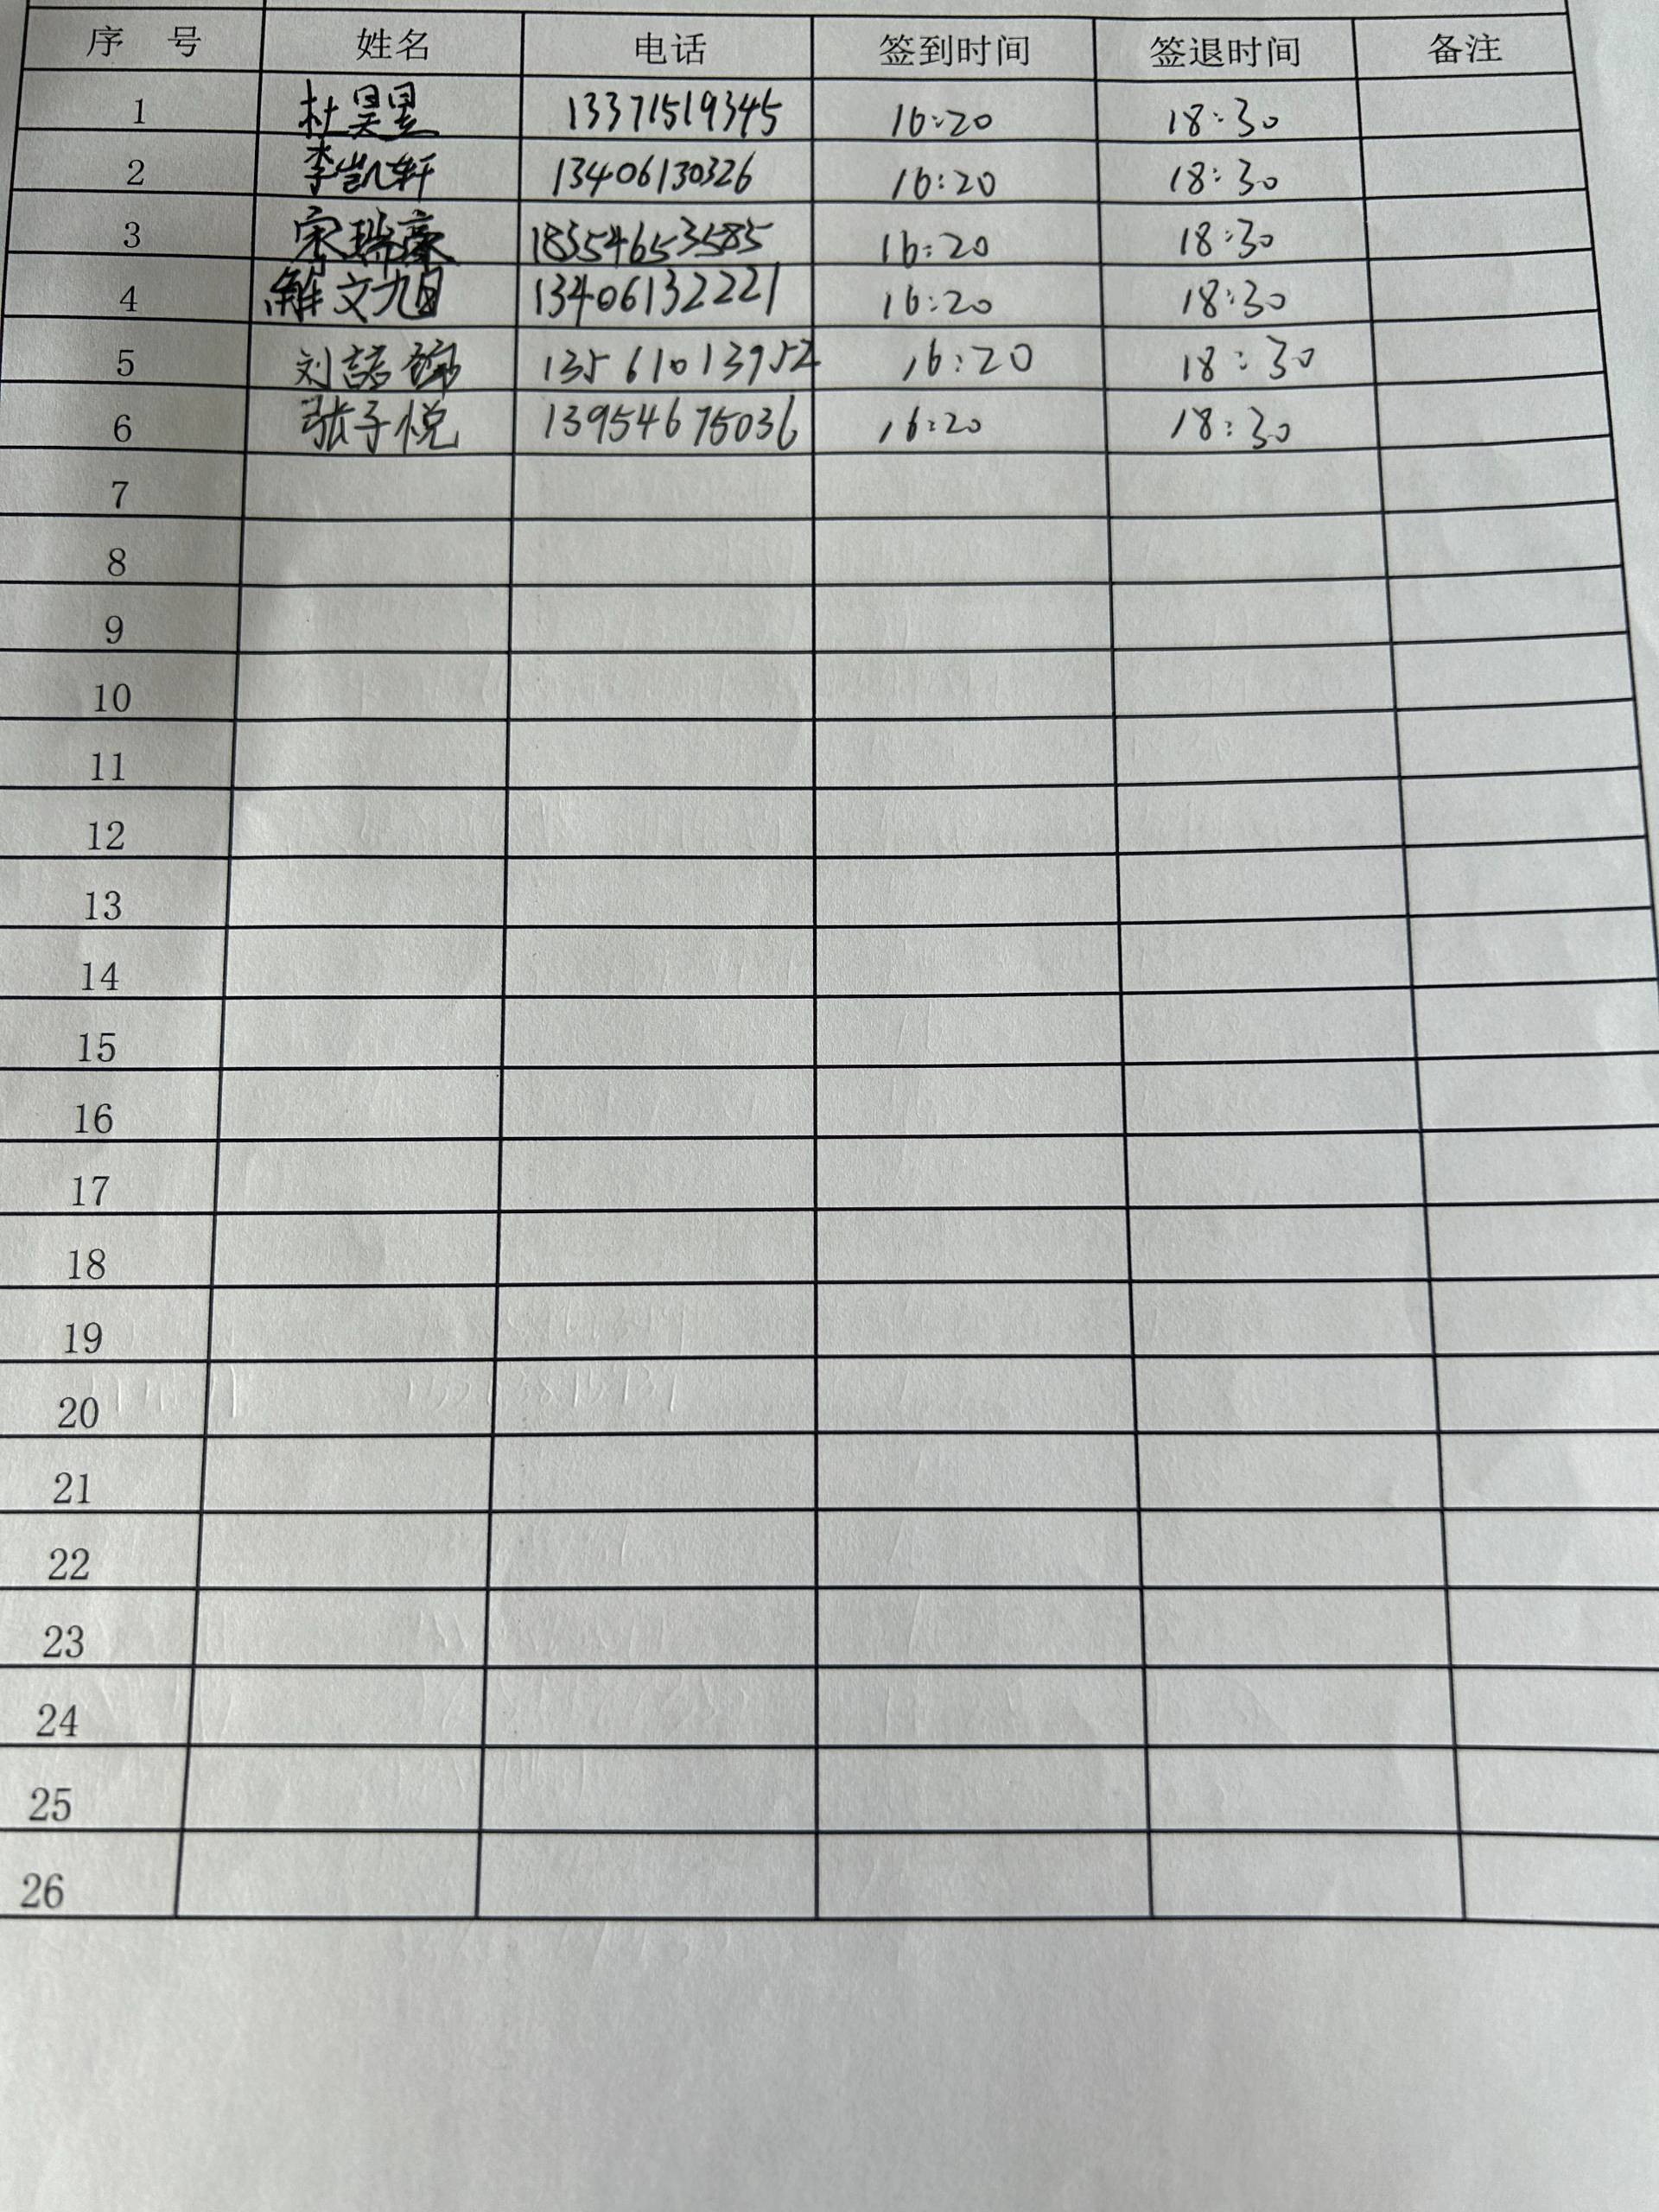 序 号 姓名 电话 签到时间 签退时间 备注
1 杜昊昱 13371519345 16:20 18:30
2 李凯轩 13406130326 16:20 18:30
3 宋瑞豪 18354653585 16:20 18:30
4 解文旭 13406132221 16:20 18:30
5 刘 13561013952 16:20 18:30
6 张子悦 13954675036 16:20 18:30
7
8
9
10
11
12
13
14
15
16
17
18
19
20
21
22
23
24
25
26